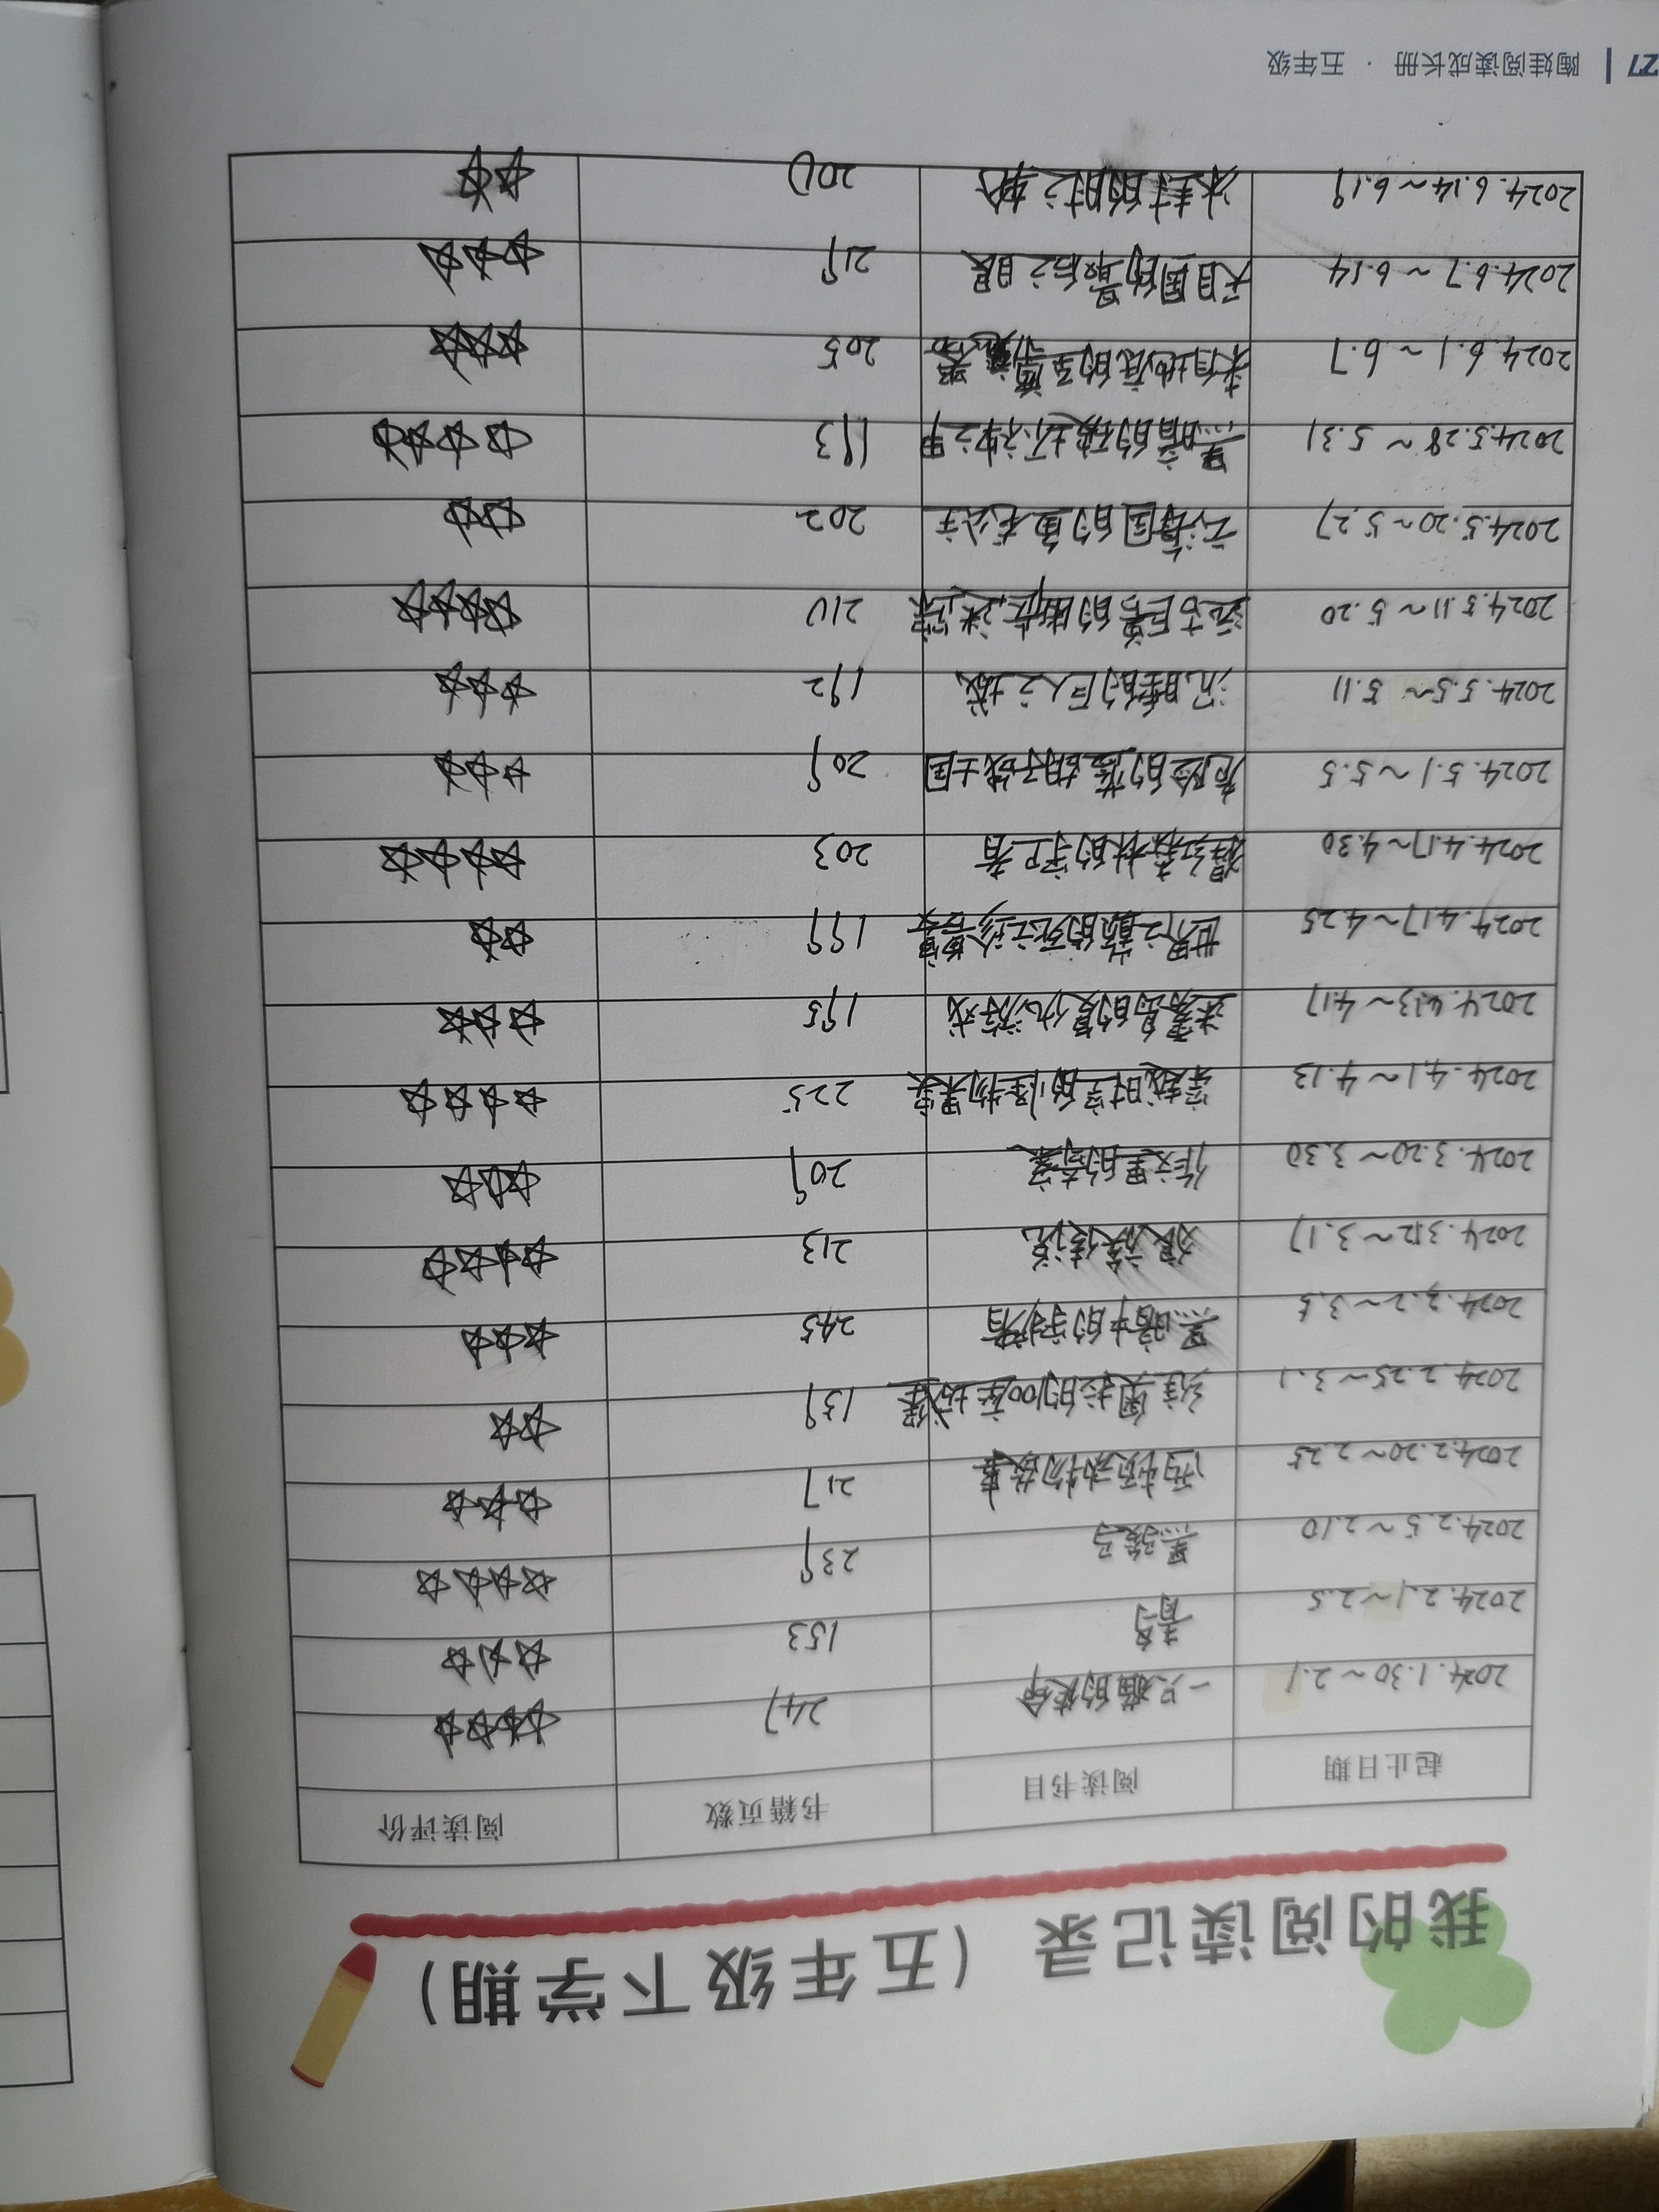 我的阅读记录（五年级下学期）
起止日期 阅读书目 书籍页数 阅读评价
2024.1.30～2.1 一只猫的使命 247 ☆☆☆☆
2024.2.1～2.5 青鸟 153 ☆☆☆
2024.2.5～2.10 黑骏马 239 ☆☆☆☆
2024.2.20～2.25 西顿动物故事 217 ☆☆☆
2024.2.25～3.1 汪奥拉的100座城堡 139 ☆☆
2024.3.2～3.5 黑暗中的守护者 245 ☆☆☆
2024.3.12～3.17 狼族传说 213 ☆☆☆☆
2024.3.20～3.30 作文里的奇案 209 ☆☆☆
2024.4.1～4.13 穿越时空的怪物果实 225 ☆☆☆☆
2024.4.13～4.17 迷雾岛的复仇游戏 195 ☆☆☆
2024.4.17～4.25 世界之巅的死亡诊 199 ☆☆
2024.4.17～4.30 猩红森林的守卫者 203 ☆☆☆☆
2024.5.1～5.5 危险的蓝胡子战士国 209 ☆☆☆
2024.5.5～5.11 沉睡的巨人之城 192 ☆☆☆
2024.5.11～5.20 远古巨兽的幽灵迷踪 210 ☆☆☆☆
2024.5.20～5.27 云海国的鱼龙公主 202 ☆☆
2024.5.28～5.31 黑暗的破坏神之甲 193 ☆☆☆☆
2024.6.1～6.7 来自地底的至尊 205 ☆☆☆
2024.6.7～6.14 天目国的最后之眼 219 ☆☆☆
2024.6.14～6.19 冰封的时之轮 200 ☆☆
陶娃阅读成长册 · 五年级 | 27